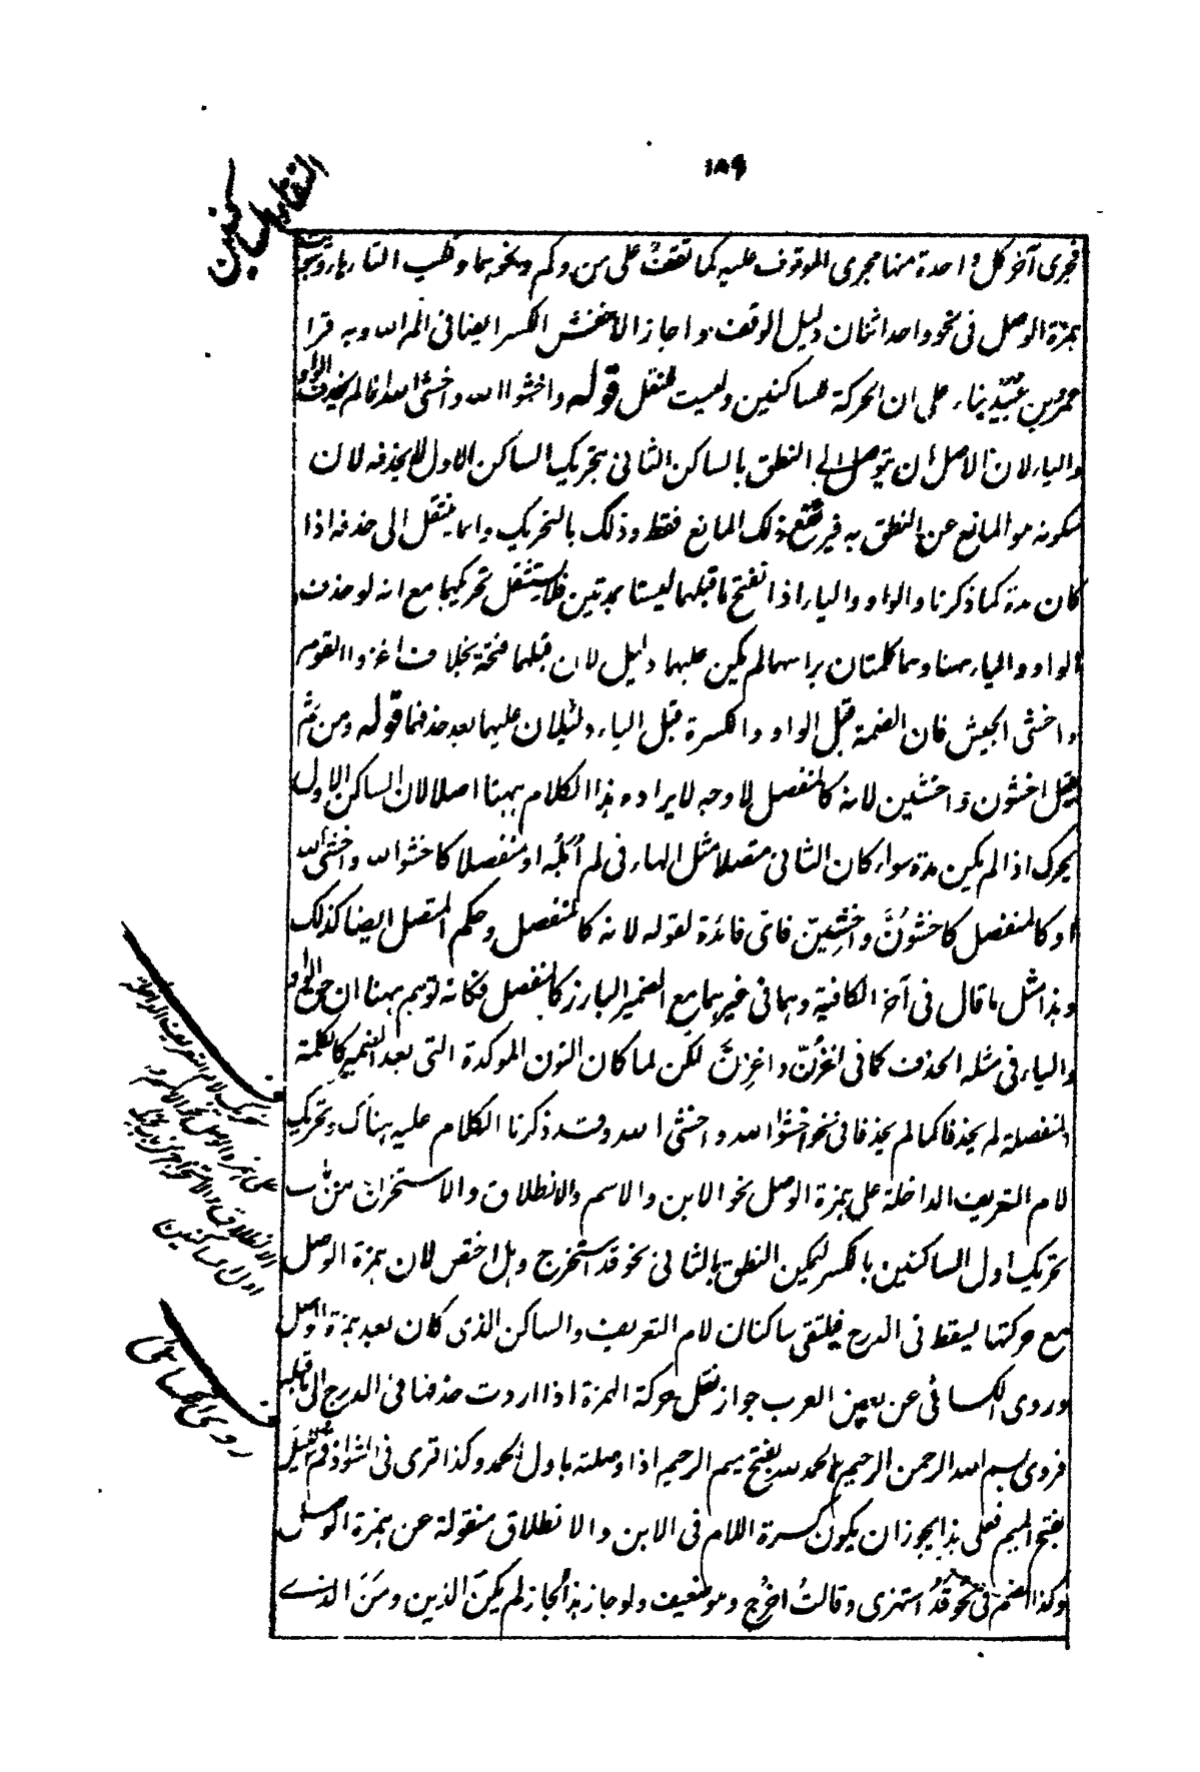 ١٨٩
التقاء الساكنين
فجرى آخر كل واحدة منها مجرى الموقوف عليه كما تقف على من وكم ونحوهما وقلب التاء هاء وثبت
همزة الوصل فى نحو واحد اثنان دليل الوقف واجاز الاخفش الكسر ايضا فى الم الله وبه قرا
عمرو بن عبيد بناء على ان الحركة للساكنين وليست للنقل قوله واخشوا الله واخشى الله انما لم يحذف الواو
والياء لان الاصل ان يتوصل الى النطق بالساكن الثانى بتحريك الساكن الاول لا بحذفه لان
سكونه هو المانع عن النطق به فيرتفع ذلك المانع فقط وذلك بالتحريك وانما ينتقل الى حذفه اذا
كان مدة كما ذكرنا والواو والياء اذا انفتح ما قبلهما ليستا بمدتين فلا يستثقل تحريكهما مع انه لو حذف
الواو والياء ههنا وهما كلمتان براسهما لم يكن عليهما دليل لان قبلهما فتحة بخلاف اغزوا القوم
واخشى الجيش فان الضمة قبل الواو والكسرة قبل الياء دليلان عليهما بعد حذفهما قوله ومن ثم
قيل اخشون واخشين لانه كالمنفصل لا وجه لايراده هذا الكلام ههنا اصلا لان الساكن الاول
يحرك اذا لم يكن مدة سواء كان الثانى متصلا مثل الهاء فى لم ابله او منفصلا كاخشوا الله واخشى الله
او كالمنفصل كاخشون واخشين فاى فائدة لقوله لانه كالمنفصل وحكم المتصل ايضا كذلك
وهذا مثل ما قال فى آخر الكافية وهما فى غيرهما مع الضمير البارز كالمنفصل فكانه توهم ههنا ان حق الواو
والياء فى مثله الحذف كما فى اغزن واغزن لكن لما كان النون الموكدة التى بعد الضمير كالكلمة
المنفصلة لم يحذفا كما لم يحذفا فى نحو اخشوا الله واخشى الله وقد ذكرنا الكلام عليه هناك وتحريك
لام التعريف الداخلة على همزة الوصل نحو الابن والاسم والانطلاق والاستخراج من باب
تحريك اول الساكنين بالكسر ليمكن النطق بالثانى نحو قد استخرج وهل احتقر لان همزة الوصل
مع حركتها يسقط فى الدرج فيلتقى ساكنان لام التعريف والساكن الذى كان بعد همزة الوصل
وروى الكسائى عن بعض العرب جواز نقل حركة الهمزة اذا اردت حذفها فى الدرج الى ما قبلها
فروى بسم الله الرحمن الرحيم الحمد لله بفتح ميم الرحيم اذا وصلته باول الحمد وكذا قرى فى الشواذ قم الليل
بفتح الميم فعلى هذا يجوز ان يكون كسرة اللام فى الابن والانطلاق منقولة عن همزة الوصل
وكذا الضم فى نحو قد استهزى وقالت اخرج وهو ضعيف ولو جاز هذا لجاز لم يكن الذين ومن الذى
تحريك لام التعريف الداخلة
على همزة الوصل نحو الاسم و
الانطلاق والاستخراج من باب تحريك
اول ساكنين
روى الكسائى